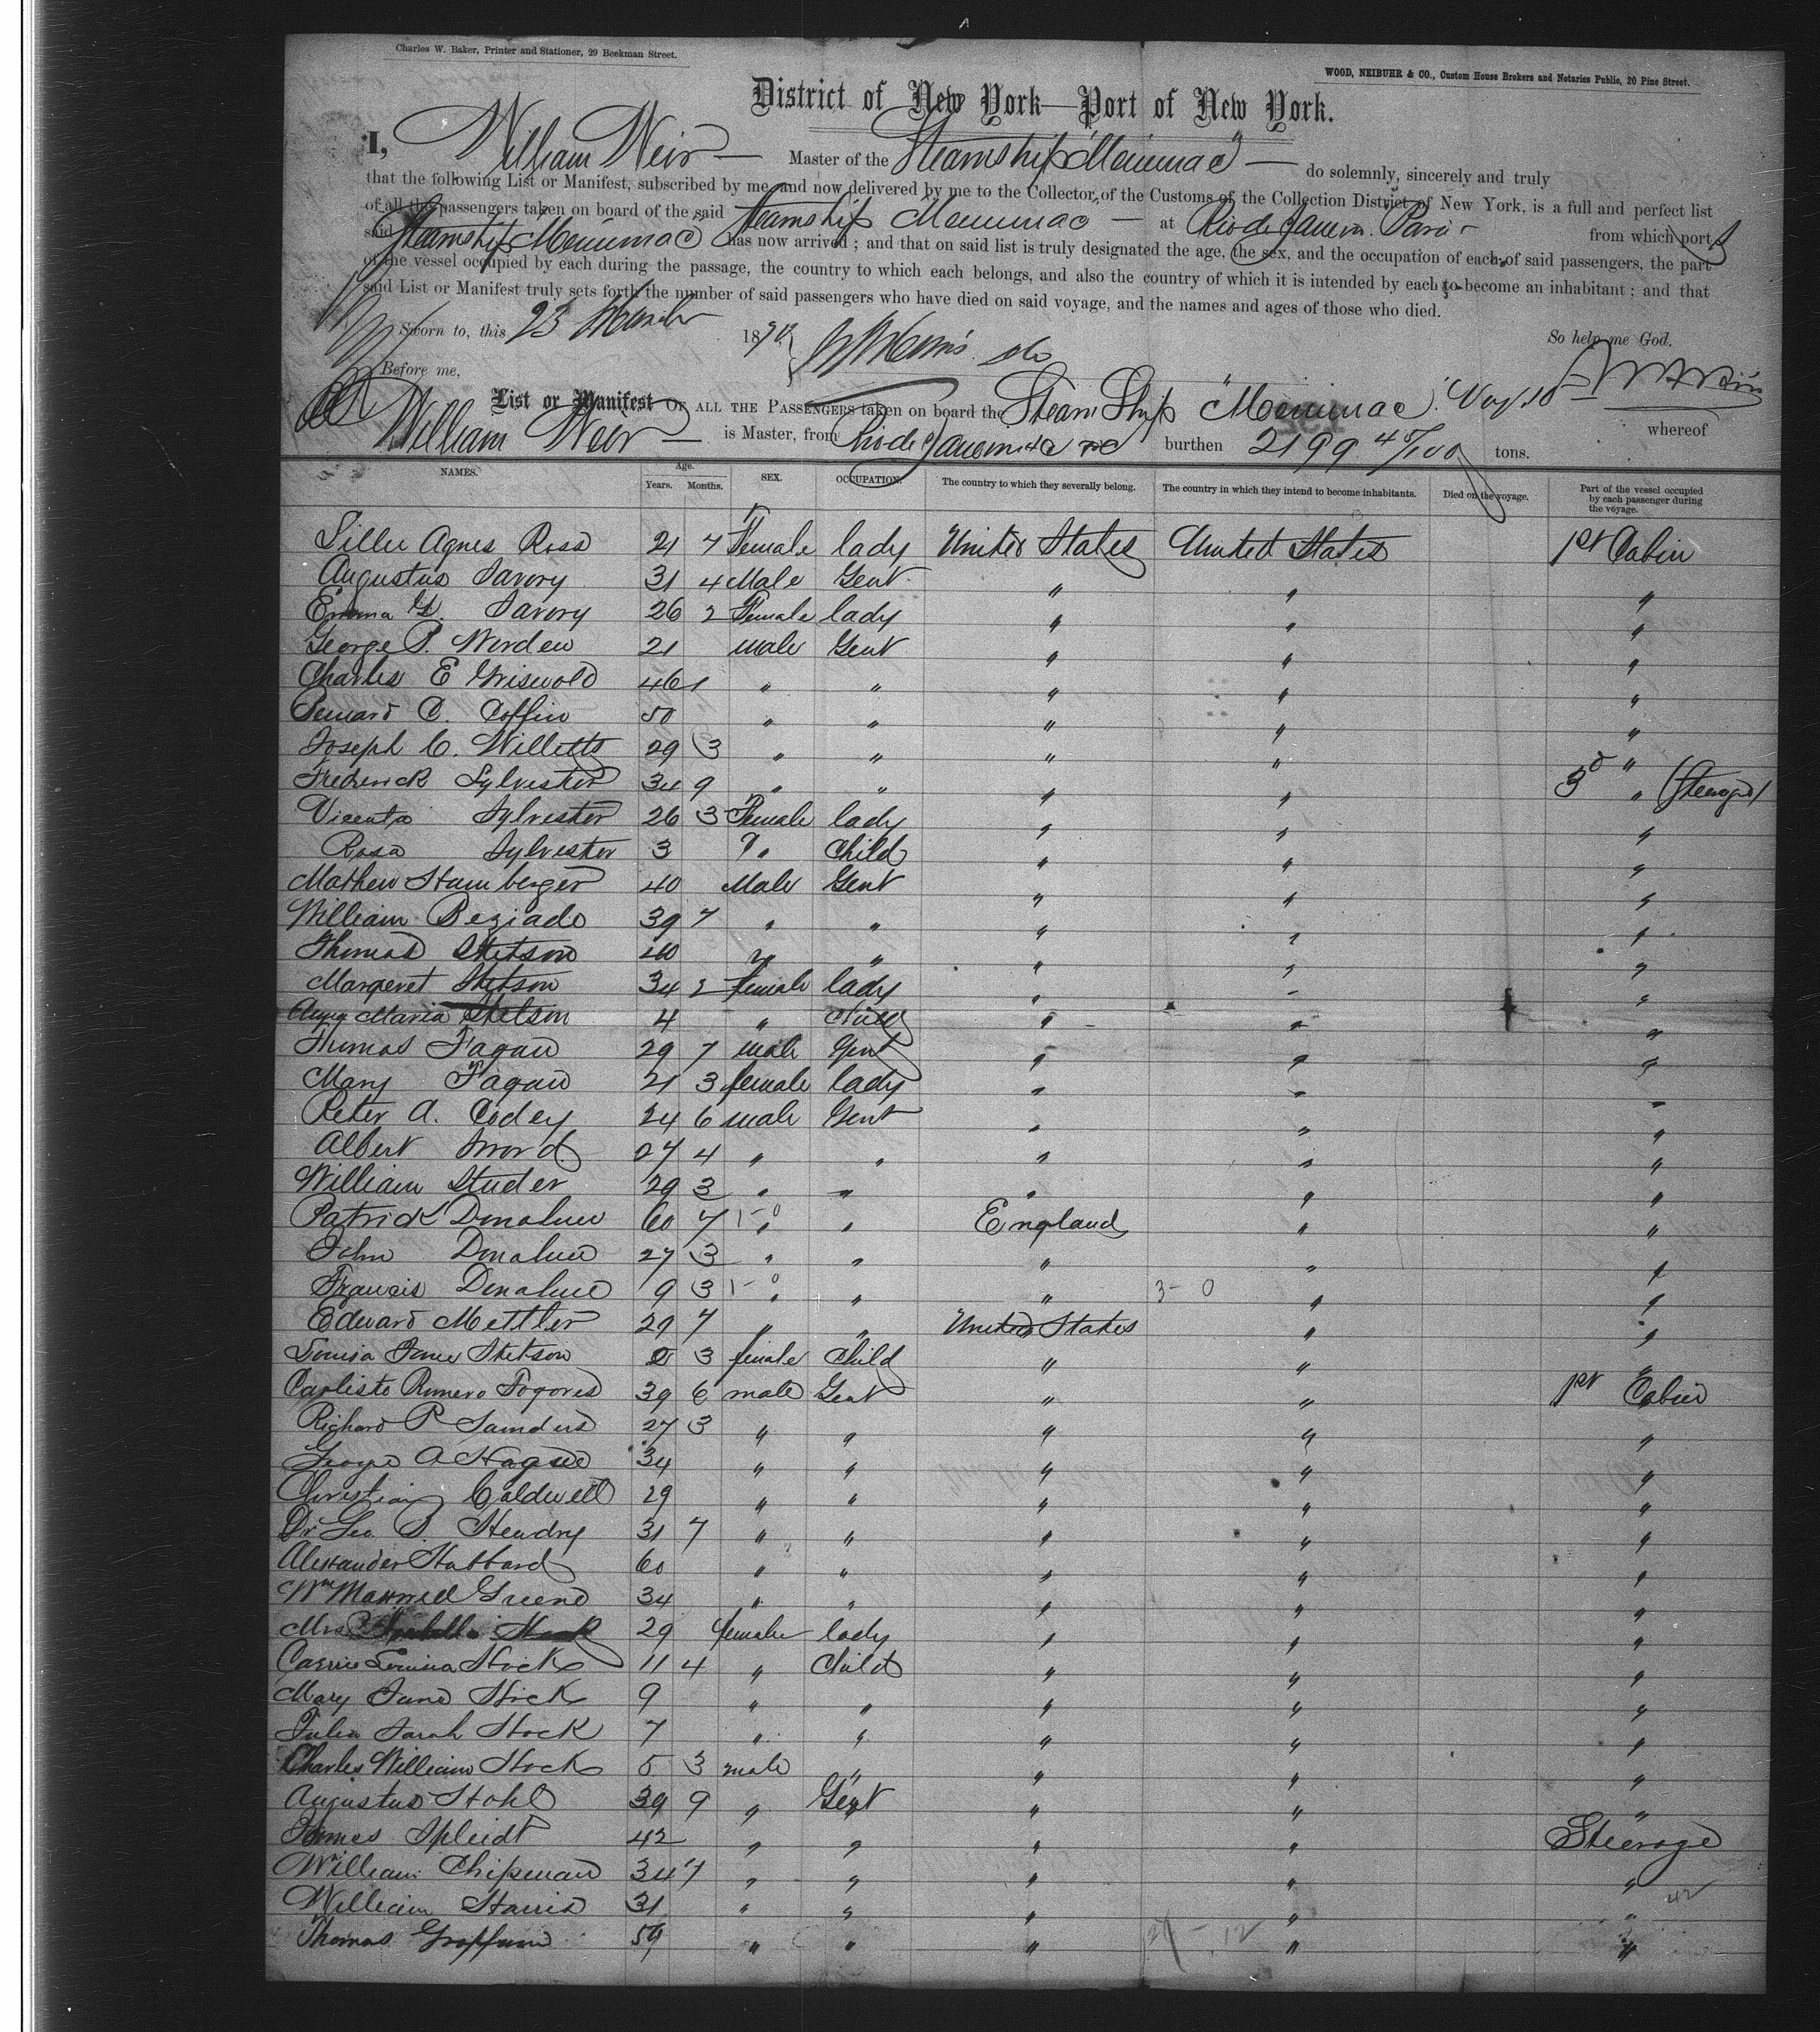 Charles W. Baker, Printer and Stationer, 29 Beekman Street.
WOOD, NEIBUHR & CO., Custom House Brokers and Notaries Public, 20 Pine Street.
District of New York—Port of New York.
I, William Weir — Master of the Steamship "Merrimac" — do solemnly, sincerely and truly
that the following List or Manifest, subscribed by me and now delivered by me to the Collector of the Customs of the Collection District of New York, is a full and perfect list
of all the passengers taken on board of the said Steamship Merrimac — at Rio de Janeiro. Para from which port
said Steamship Merrimac has now arrived; and that on said list is truly designated the age, the sex, and the occupation of each of said passengers, the part
of the vessel occupied by each during the passage, the country to which each belongs, and also the country of which it is intended by each to become an inhabitant; and that
said List or Manifest truly sets forth the number of said passengers who have died on said voyage, and the names and ages of those who died.
Sworn to, this 23 1870 So help me God.
Before me,
List or Manifest OF ALL THE PASSENGERS taken on board the Steam Ship "Merrimac" Voy 18
William Weir — is Master, from Rio de Janeiro burthen 2199 45/100 tons. whereof
NAMES. Age. Years. Months. SEX. OCCUPATION. The country to which they severally belong. The country in which they intend to become inhabitants. Died on the voyage. Part of the vessel occupied by each passenger during the voyage.
Lillie Agnes Ross 21 7 Female lady United States United States 1st Cabin
Augustus Savory 31 4 Male Gent " " "
Emma G. Savory 26 2 Female lady " " "
George P. Worden 21 male Gent " " "
Charles E Griswold 46 1 " " " " "
C. Coffin 50 " " " " "
Joseph C. Willetts 29 3 " " " " "
Frederick Sylvester 34 9 " " " " 3d " (Steerage)
Vicenta Sylvester 26 3 Female lady " " "
Rosa Sylvester 3 " Child " " "
Mathew Hamberger 40 Male Gent " " "
William Beziado 39 7 " " " " "
Thomas Stetson 40 " " " " "
Margeret Stetson 34 2 female lady " " "
Anna Maria Stetson 4 " Child " " "
Thomas Fagan 29 7 male Gent " " "
Mary Fagan 21 3 female lady " " "
Peter A. Codey 24 6 male Gent " " "
Albert 27 4 " " " " "
William Studer 29 3 " " " " "
Patrick Donahue 60 7 " " England " "
John Donahue 27 3 " " " " "
Francis Donahue 9 3 " " " 3-0 " "
Edward Mettler 29 7 " " United States " "
Louisa Jane Stetson 2 3 female Child " " "
Carlisto Romero 39 6 male Gent " " 1st Cabin
Richard P Saunders 27 3 " " " " "
George A Hague 34 " " " " "
Christian Caldwell 29 " " " " "
Dr Geo. P. Hendry 31 7 " " " " "
Alexander Hubbard 60 " " " " "
Wm Maxwell Greene 34 " " " " "
Mrs 29 female lady " " "
Carrie Louisa Stock 11 4 " Child " " "
Mary Jane Stock 9 " " " " "
Julia Sarah Stock 7 " " " " "
Charles William Stock 5 3 male " " " "
Augustus Stohl 39 9 " Gent " " "
James Spleidt 42 " " " " Steerage
William Chipman 34 7 " " " " "
William Harris 31 " " " " "
Thomas 59 " " " " "